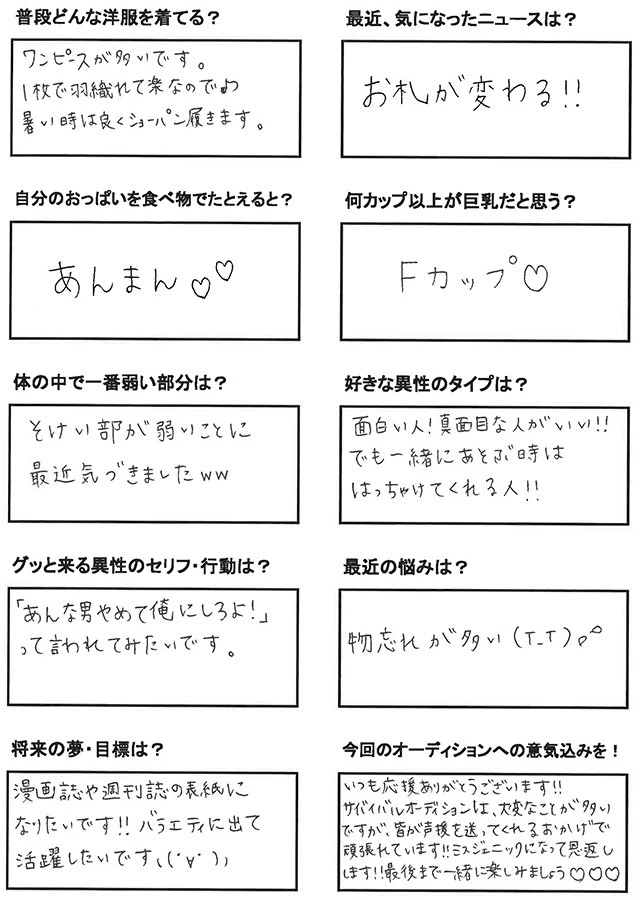 普段どんな洋服を着てる？
ワンピースが多いです。
1枚で羽織れて楽なので♪
暑い時は良くショーパン履きます。
最近、気になったニュースは？
お札が変わる!!
自分のおっぱいを食べ物でたとえると？
あんまん♡♡
何カップ以上が巨乳だと思う？
Fカップ♡
体の中で一番弱い部分は？
そけい部が弱いことに
最近気づきましたww
好きな異性のタイプは？
面白い人!真面目な人がいい!!
でも一緒にあそぶ時は
はっちゃけてくれる人!!
グッと来る異性のセリフ・行動は？
「あんな男やめて俺にしろよ!」
って言われてみたいです。
最近の悩みは？
物忘れが多い(T_T)
将来の夢・目標は？
漫画誌や週刊誌の表紙に
なりたいです!!バラエティに出て
活躍したいです、(´∀`)ﾉ
今回のオーディションへの意気込みを！
いつも応援ありがとうございます!!
サバイバルオーディションは、大変なことが多い
ですが、皆が声援を送ってくれるおかげで
頑張れています!!ミスジェニックになって恩返し
します!!最後まで一緒に楽しみましょう♡♡♡